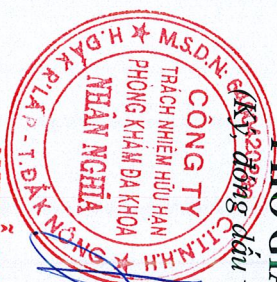 M.S.D.N: 6
C.T.T.N.H.H
H.ĐẮK R'LẤP - T.ĐẮK NÔNG
CÔNG TY
TRÁCH NHIỆM HỮU HẠN
PHÒNG KHÁM ĐA KHOA
NHÂN NGHĨA
(Ký, đóng dấu